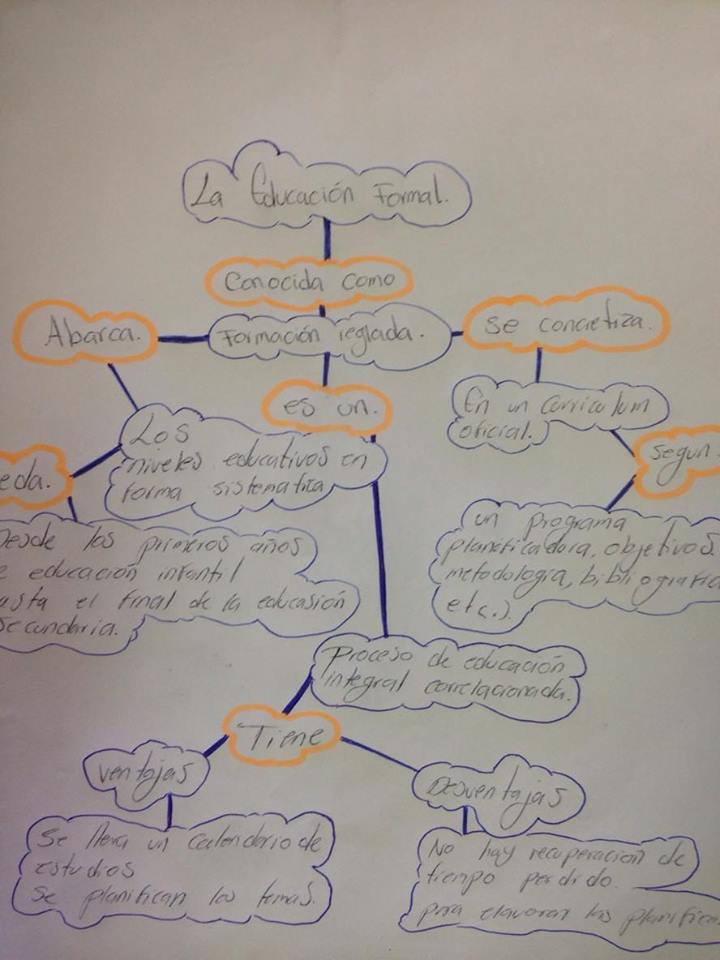 La Educación Formal.
Conocida como
Abarca.
Formación reglada.
se concretiza.
es un.
En un curriculum
oficial.
Los
niveles educativos en
forma sistematica
segun.
eda.
Desde los primeros años
e educación infantil
asta el final de la educasión
secundaria.
un programa
planificadora, objetivos.
metodología, bibliografica
etc.).
Proceso de educación
integral correlacionada.
Tiene
ventajas
Desventajas
se lleva un calendario de
estudios
se planifican los temas.
No hay recuperacion de
tiempo perdido.
para elavorar las planifica